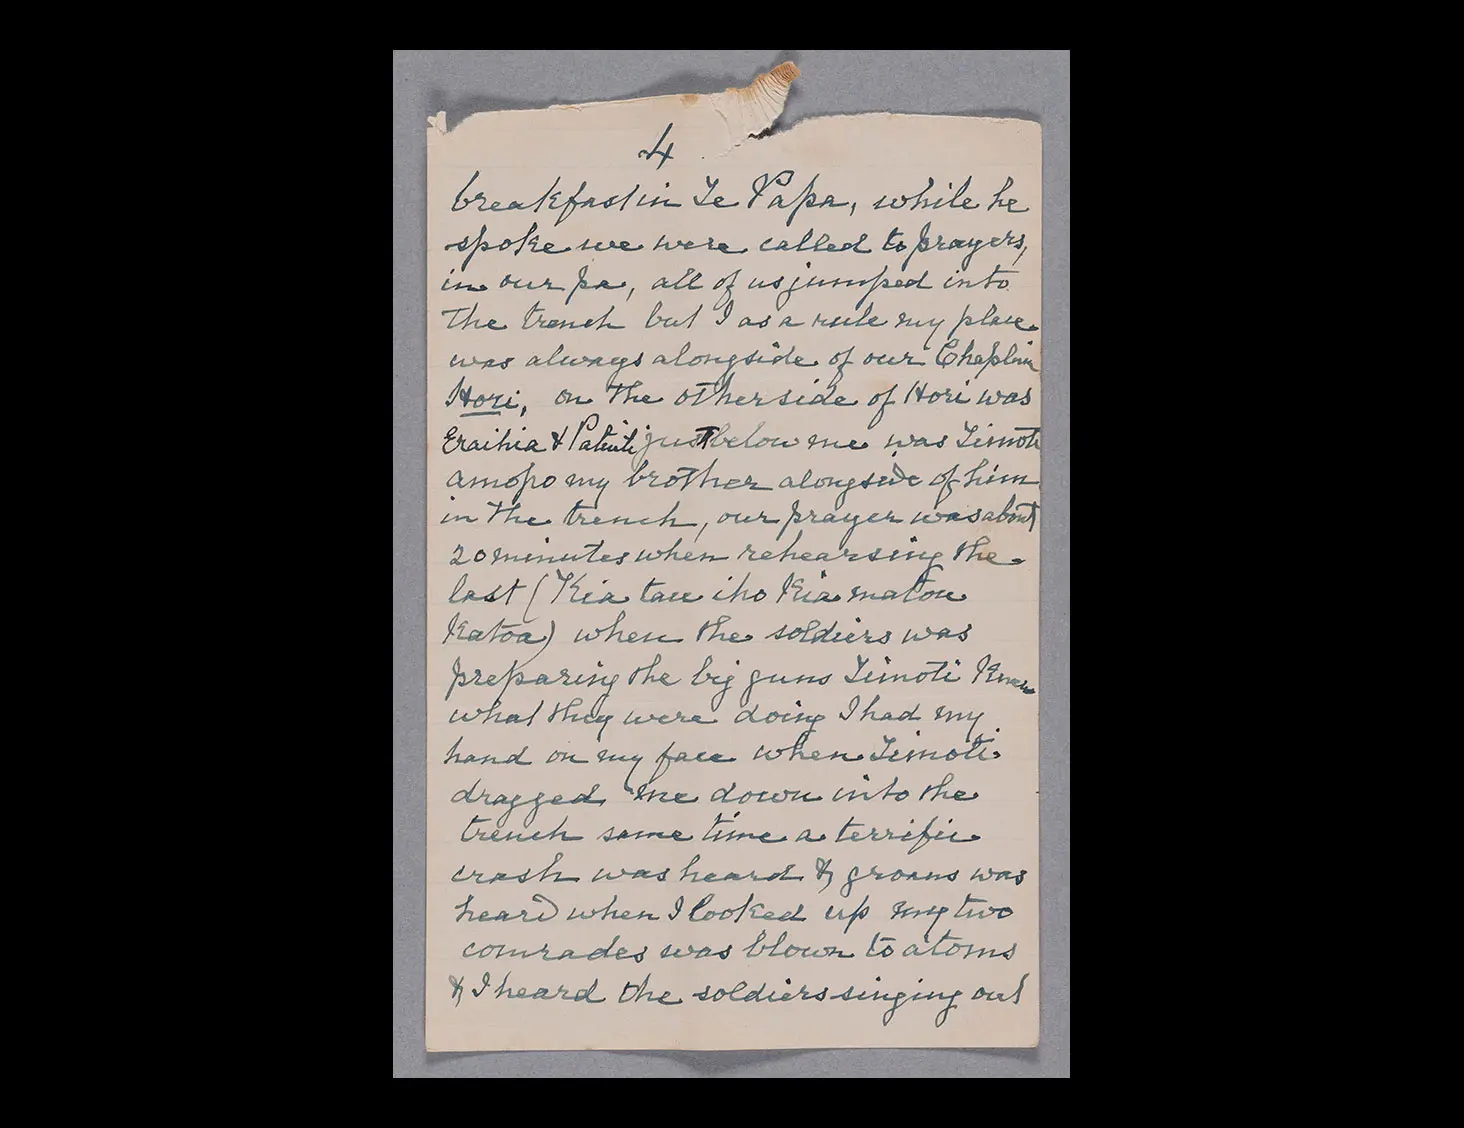 4
breakfast in Te Papa, while he
spoke we were called to prayers,
in our pa, all of us jumped into
the trench but I as a rule my place
was always alongside of our Chaplin
Hori, on the otherside of Hori was
Eraihia & Patuiti just below me was Timoti
amopo my brother alongside of him
in the trench, our prayer was about
20 minutes when rehearsing the
last (Kia tau iho Kia matou
Katoa) when the soldiers was
preparing the big guns Timoti Knew
what they were doing I had my
hand on my face when Timoti
dragged me down into the
trench same time a terrific
crash was heard & groans was
heard when I looked up my two
comrades was blown to atoms
& I heard the soldiers singing out